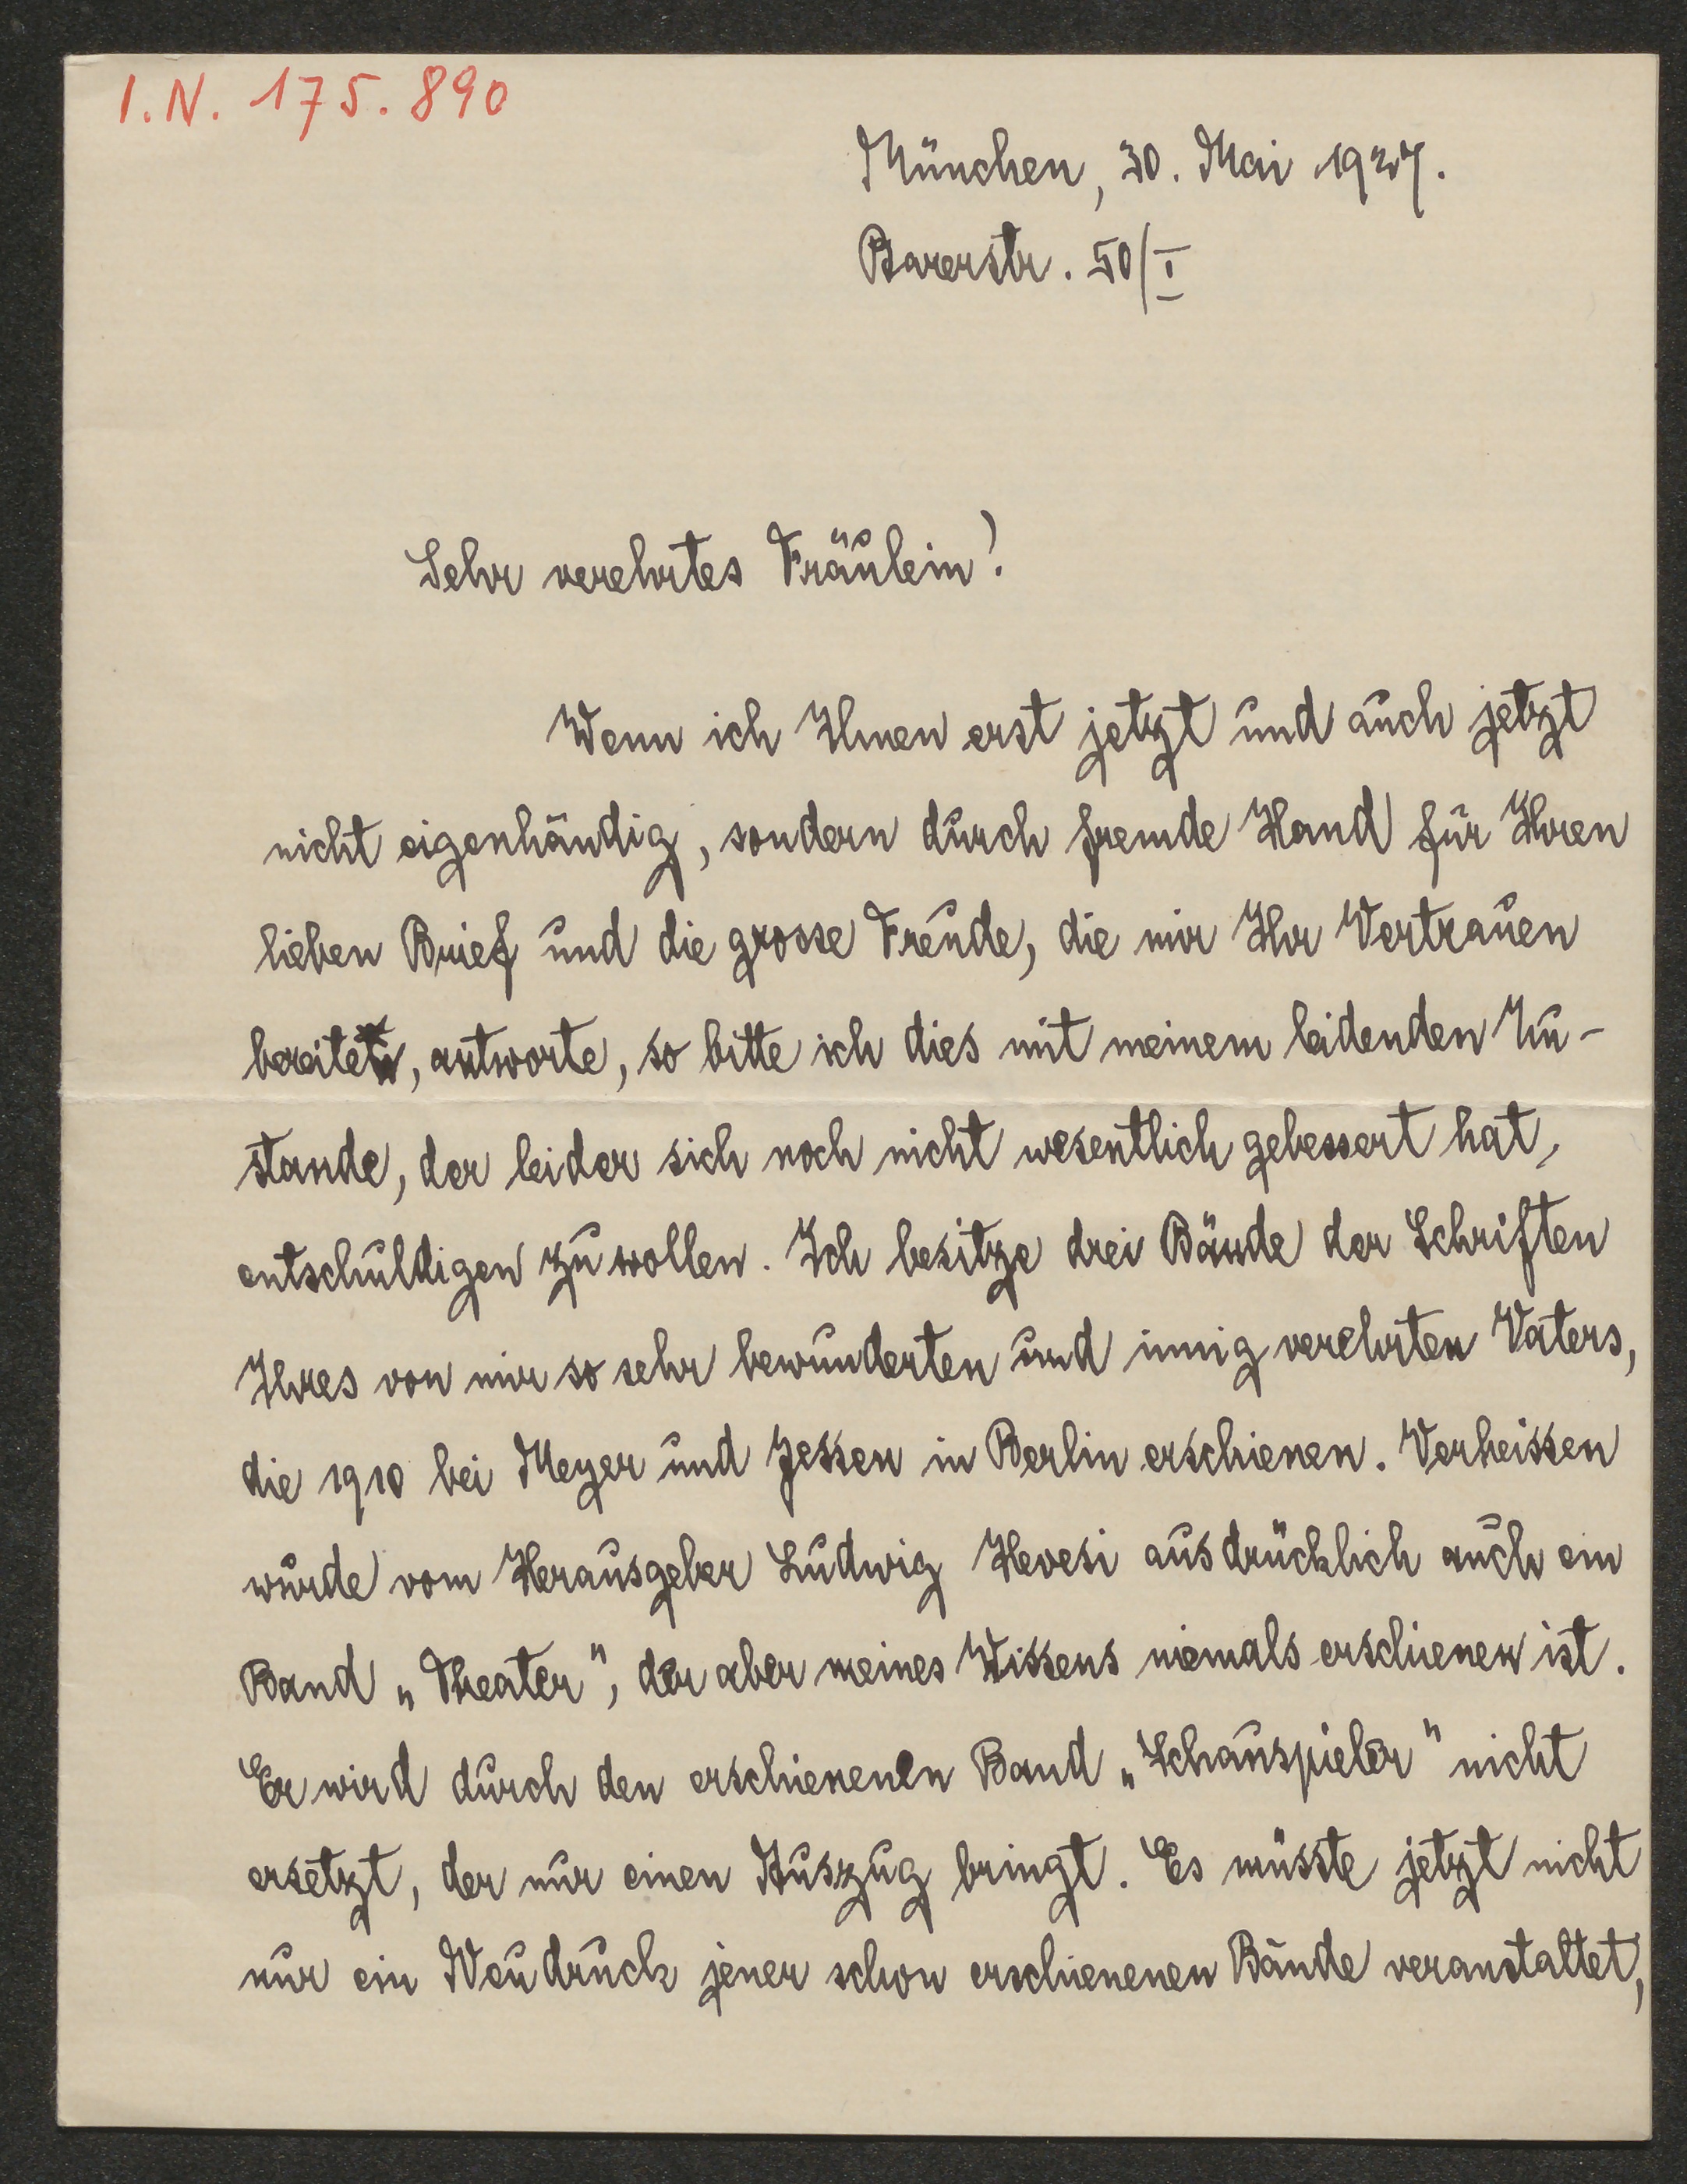 I.N. 175.890
München, 30. Mai 1927.
Barerstr. 50/I
Sehr verehrtes Fräulein!
Wenn ich Ihnen erst jetzt und auch jetzt
nicht eigenhändig, sondern durch fremde Hand für Ihren
lieben Brief und die grosse Freude, die mir Ihr Vertrauen
bereitet, antworte, so bitte ich dies mit meinem leidenden Zu-
stande, der leider sich noch nicht wesentlich gebessert hat,
entschuldigen zu wollen. Ich besitze drei Bände der Schriften
Ihres von mir so sehr bewunderten und innig verehrten Vaters,
die 1910 bei Meyer und Jessen in Berlin erschienen. Verheissen
wurde vom Herausgeber Ludwig Hevesi ausdrücklich auch ein
Band „Theater", der aber meines Wissens niemals erschienen ist.
Er wird durch den erschienenen Band „Schauspieler" nicht
ersetzt, der nur einen Auszug bringt. Es müsste jetzt nicht
nur ein Neudruck jener schon erschienenen Bände veranstaltet,